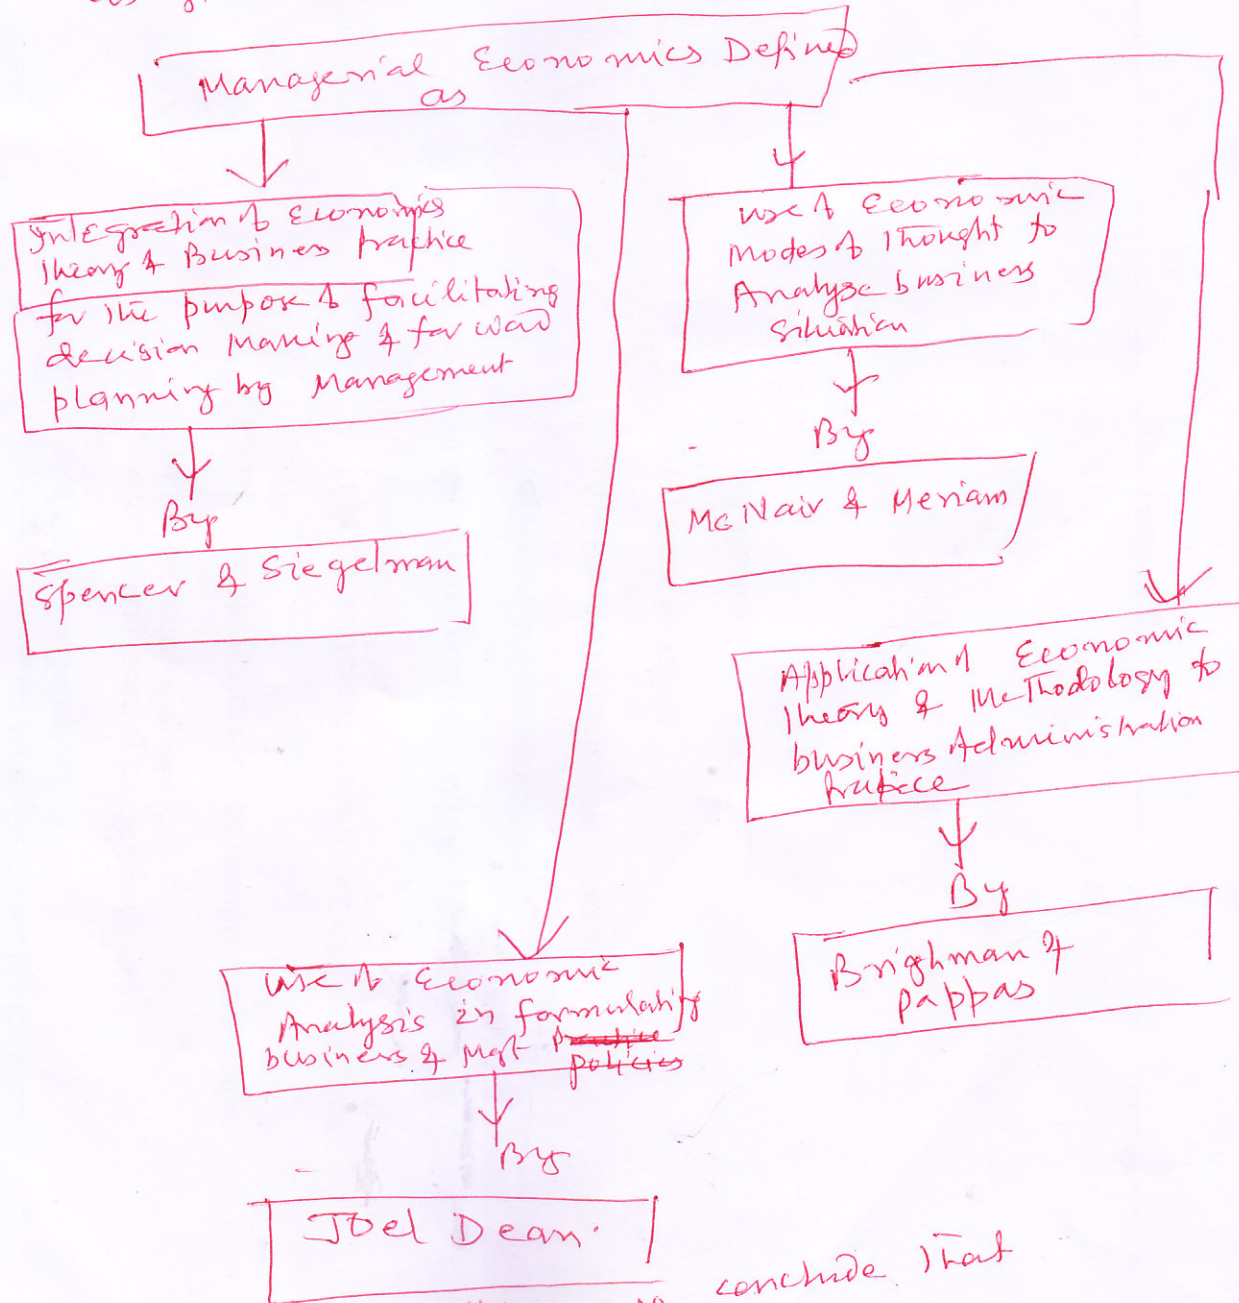 Managerial Economics Defined
as
Integration of Economics
Theory & Business Practice
for the purpose of facilitating
decision Making & forward
planning by Management
By
Spencer & Siegelman
use of Economic
Modes of Thought to
Analyse business
Situation
By
McNair & Meriam
Application of Economic
Theory & Methodology to
business Administration
Practice
By
Brighman &
Pappas
use of Economic
Analysis in formulating
business & Mgt Practice
policies
By
Joel Dean.
conclude that